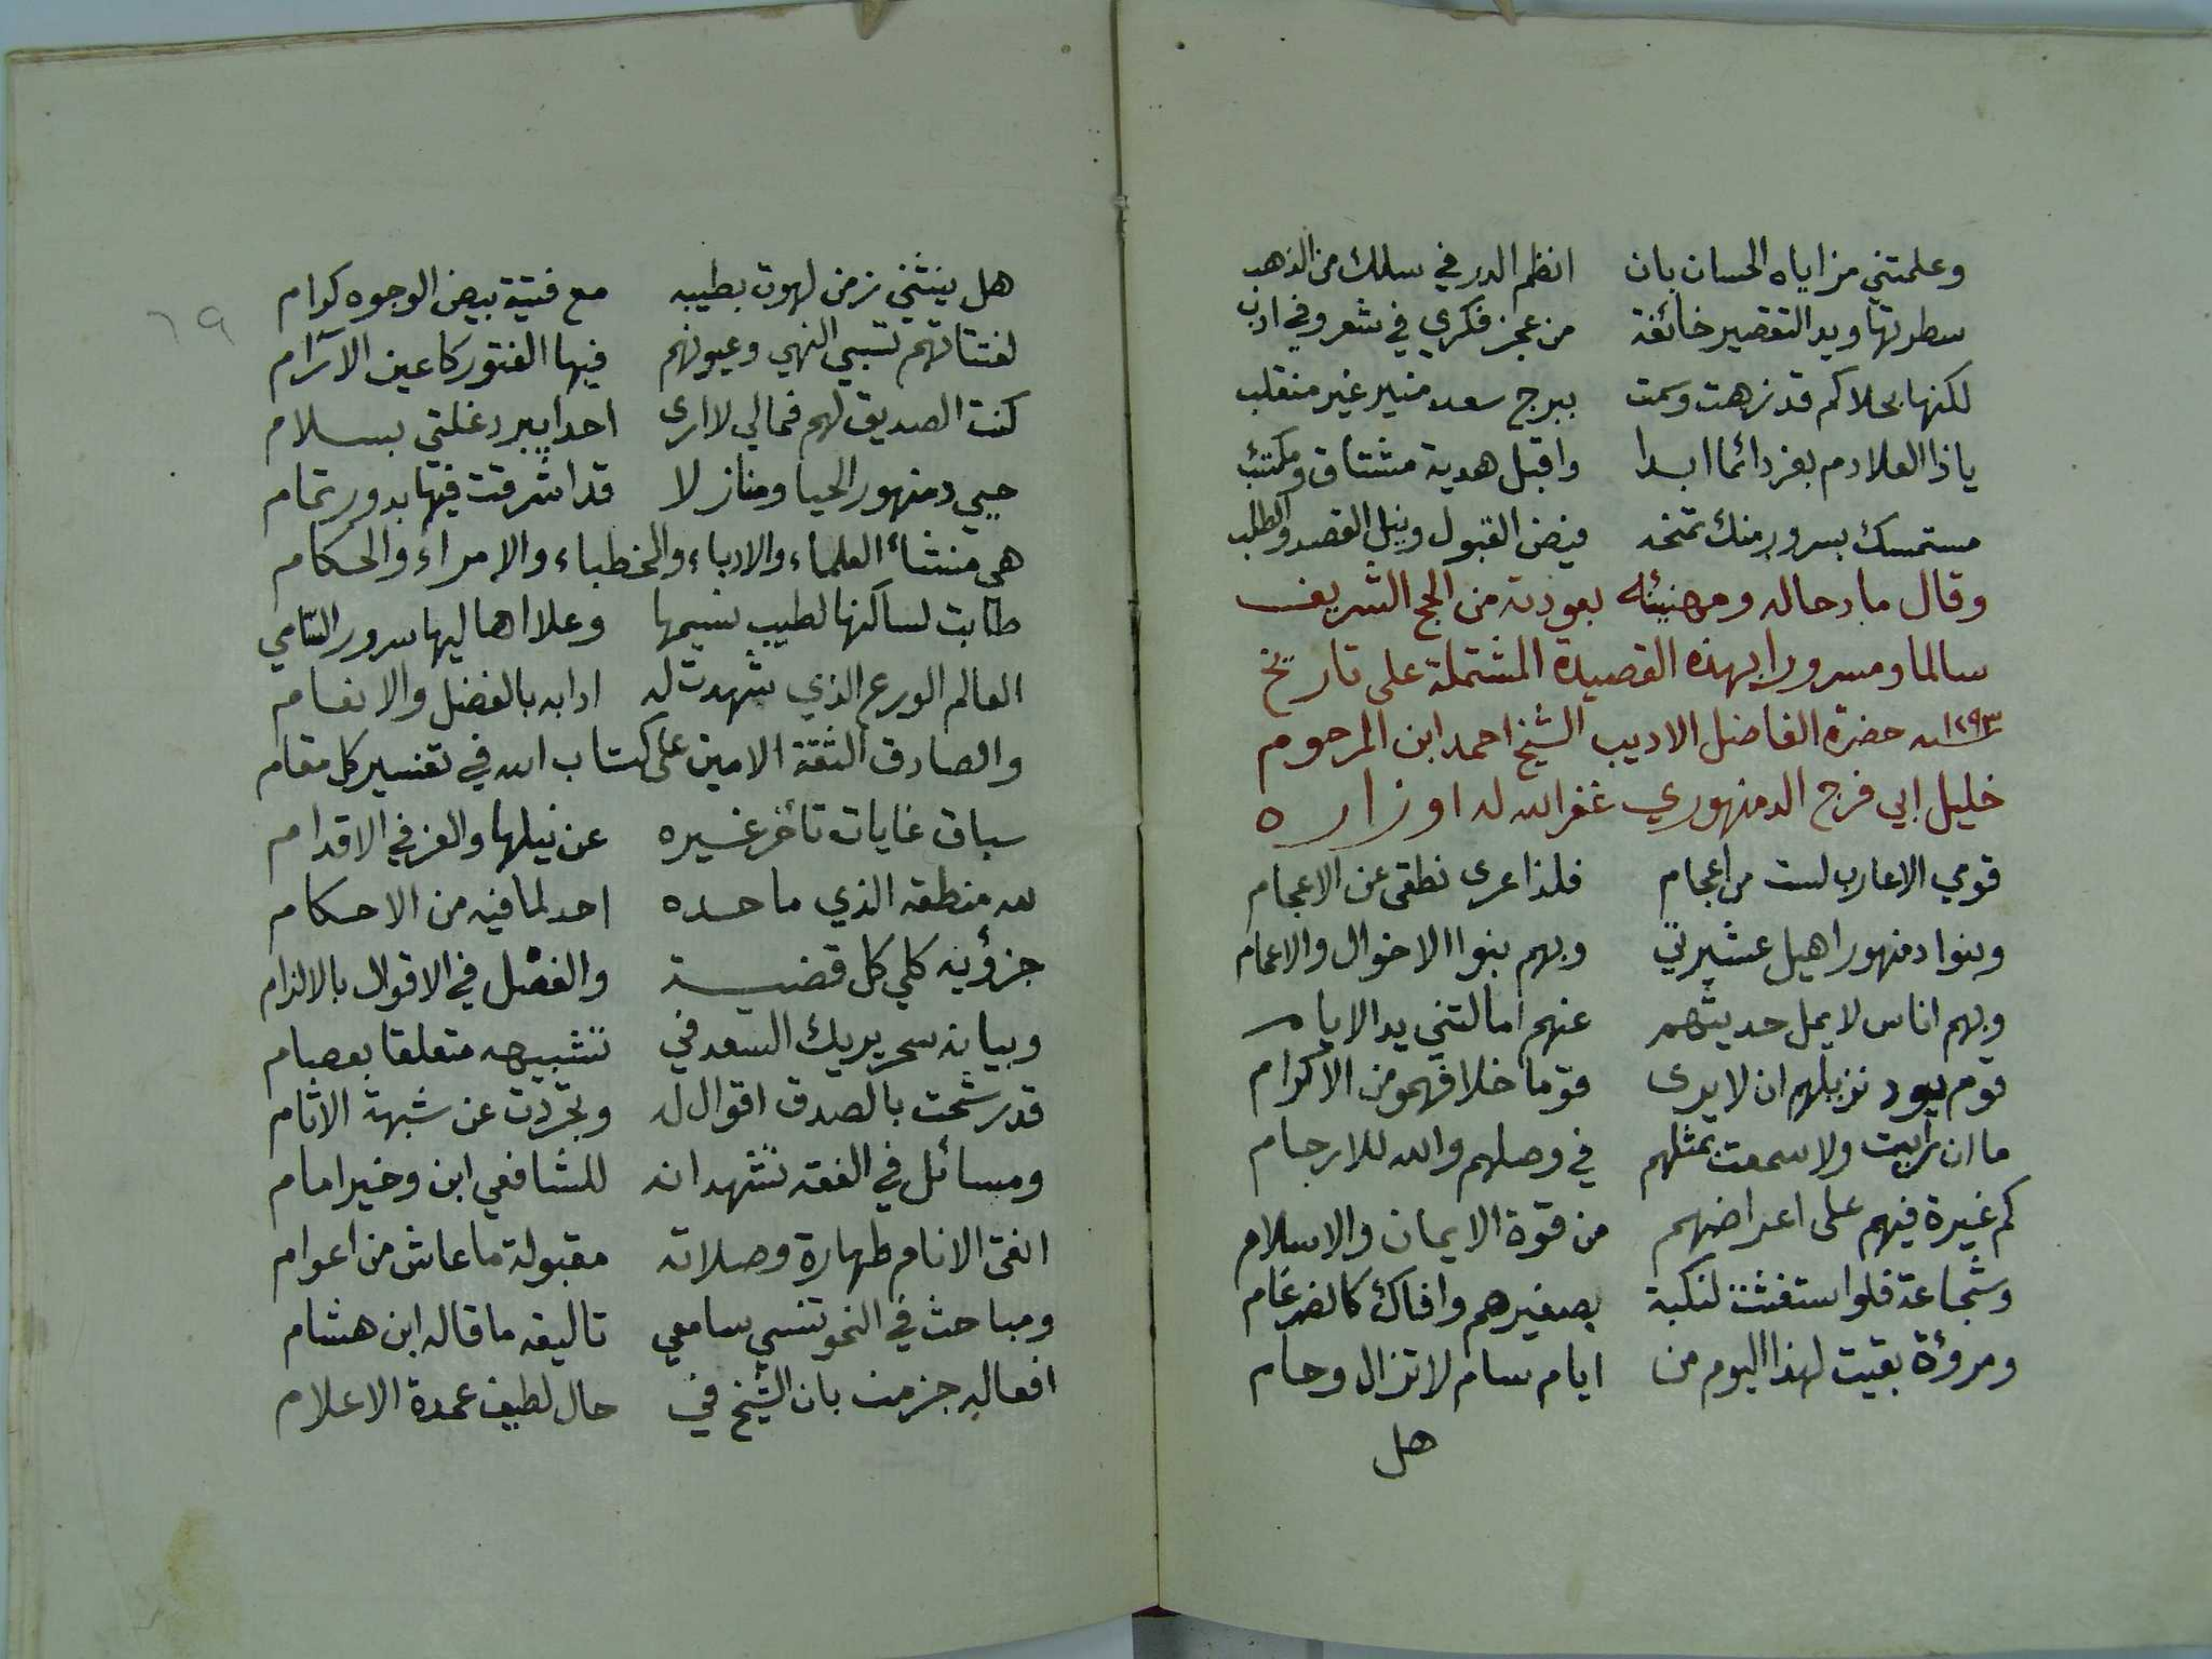 وعلمتني مزاياه الحسان بان انظم الدر في سلك من الذهب
سطرتها ويد التقصير خائفة من عجز فكري في شعر وفي ادب
لكنها بحلاكم قد زهت وسمت ببرج سعد منير غير منقلب
ياذا العلا دم بعز دائما ابدا واقبل هدية مشتاق ومكتئب
مستمسك بسرور منك تمنحه فيض القبول ونيل القصد والطلب
وقال مادحا له ومهنيئه بعودته من الحج الشريف
سالما ومسرورا بهذه القصيدة المشتملة على تاريخ
سنة ١٢٩٣ حضرة الفاضل الاديب الشيخ احمد ابن المرحوم
خليل ابي فرج الدمنهوري غفر الله له اوزاره
قومي الاعارب لست من اعجام فلذا عرى نطقي عن الاعجام
وبنوا دمنهور اهيل عشيرتي وبهم بنوا الاخوال والاعمام
وبهم اناس لا يمل حديثهم عنهم امالتني يد الايام
قوم يود نزيلهم ان لا يرى قوما خلافهمو من الاكرام
ما ان رايت ولا سمعت بمثلهم في وصلهم والله للارحام
كم غيرة فيهم على اعراضهم من قوة الايمان والاسلام
وشجاعة فلو استغثت لنكبة بصغيرهم وافاك كالضرغام
ومروؤة بقيت لهذا اليوم من ايام سام لا تزال وحام
هل
٦٩
هل ينثني زمن لهوت بطيبه مع فتية بيض الوجوه كرام
لفتاتهم تسبي النهي وعيونهم فيها الفتور كاعين الآرام
كنت الصديق لهم فمالي لا ارى احدا يبرد غلتي بسلام
حيي دمنهور الحيا ومنازلا قد اشرقت فيها بدور تمام
هي منشأ العلماء والادباء والخطباء والامراء والحكام
طابت لساكنها لطيب نسيمها وعلا اهاليها سرور السامي
العالم الورع الذي شهدت له ادابه بالفضل والانعام
والصادق الثقة الامين على كتاب الله في تفسير كل مقام
سباق غايات تأخر غيره عن نيلها والعز في الاقدام
لله منطقه الذي ما حده احد لما فيه من الاحكام
جزؤيه كلي كل قضية والفصل في الاقوال بالالزام
وبيانه سحر يريك السعد في تشبيهه متعلقا بعصام
قد رشحت بالصدق اقوال له وتجردت عن شبهة الاثام
ومسائل في الفقه تشهد انه للشافعي ابن وخير امام
اتقى الانام طهارة وصلاته مقبولة ما عاش من اعوام
ومباحث في النحو تنسي سامعي تاليفه ما قاله ابن هشام
افعاله جزمت بان الشيخ في حال لطيف عمدة الاعلام